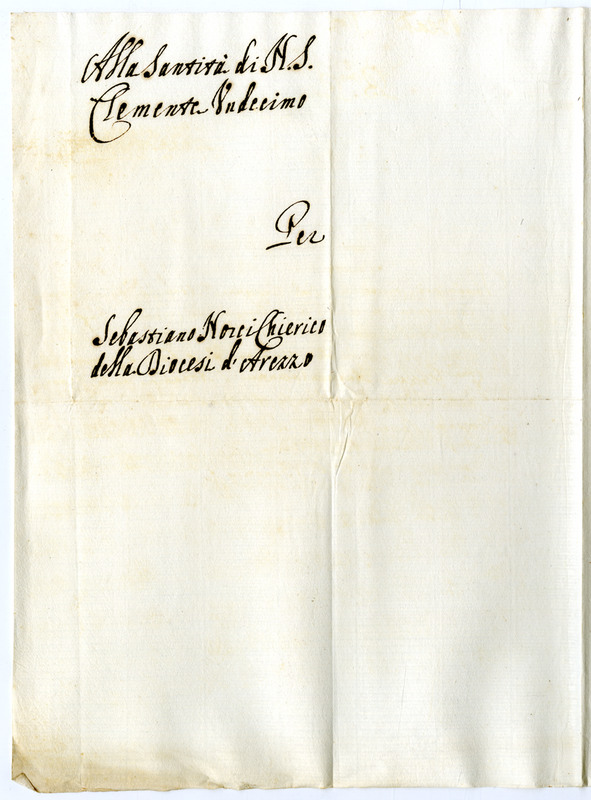 Alla Santità di N. S.
Clemente Undecimo
Per
Sebastiano Norci Chierico
della Diocesi d'Arezzo